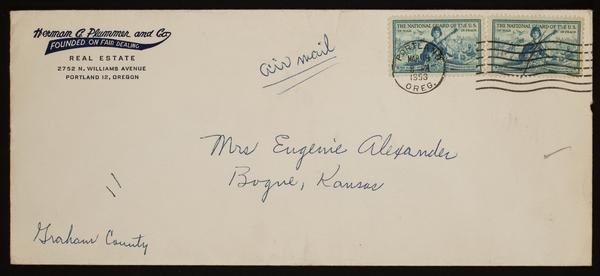 Herman C. Plummer and Co
FOUNDED ON FAIR DEALING
REAL ESTATE
2752 N. WILLIAMS AVENUE
PORTLAND 12, OREGON
air mail
THE NATIONAL GUARD OF THE U.S.
IN WAR IN PEACE
THE NATIONAL GUARD OF THE U.S.
IN WAR IN PEACE
PORTLAND
MAR
1953
OREG.
Mrs Eugenie Alexander
Bogue, Kansas
Graham County